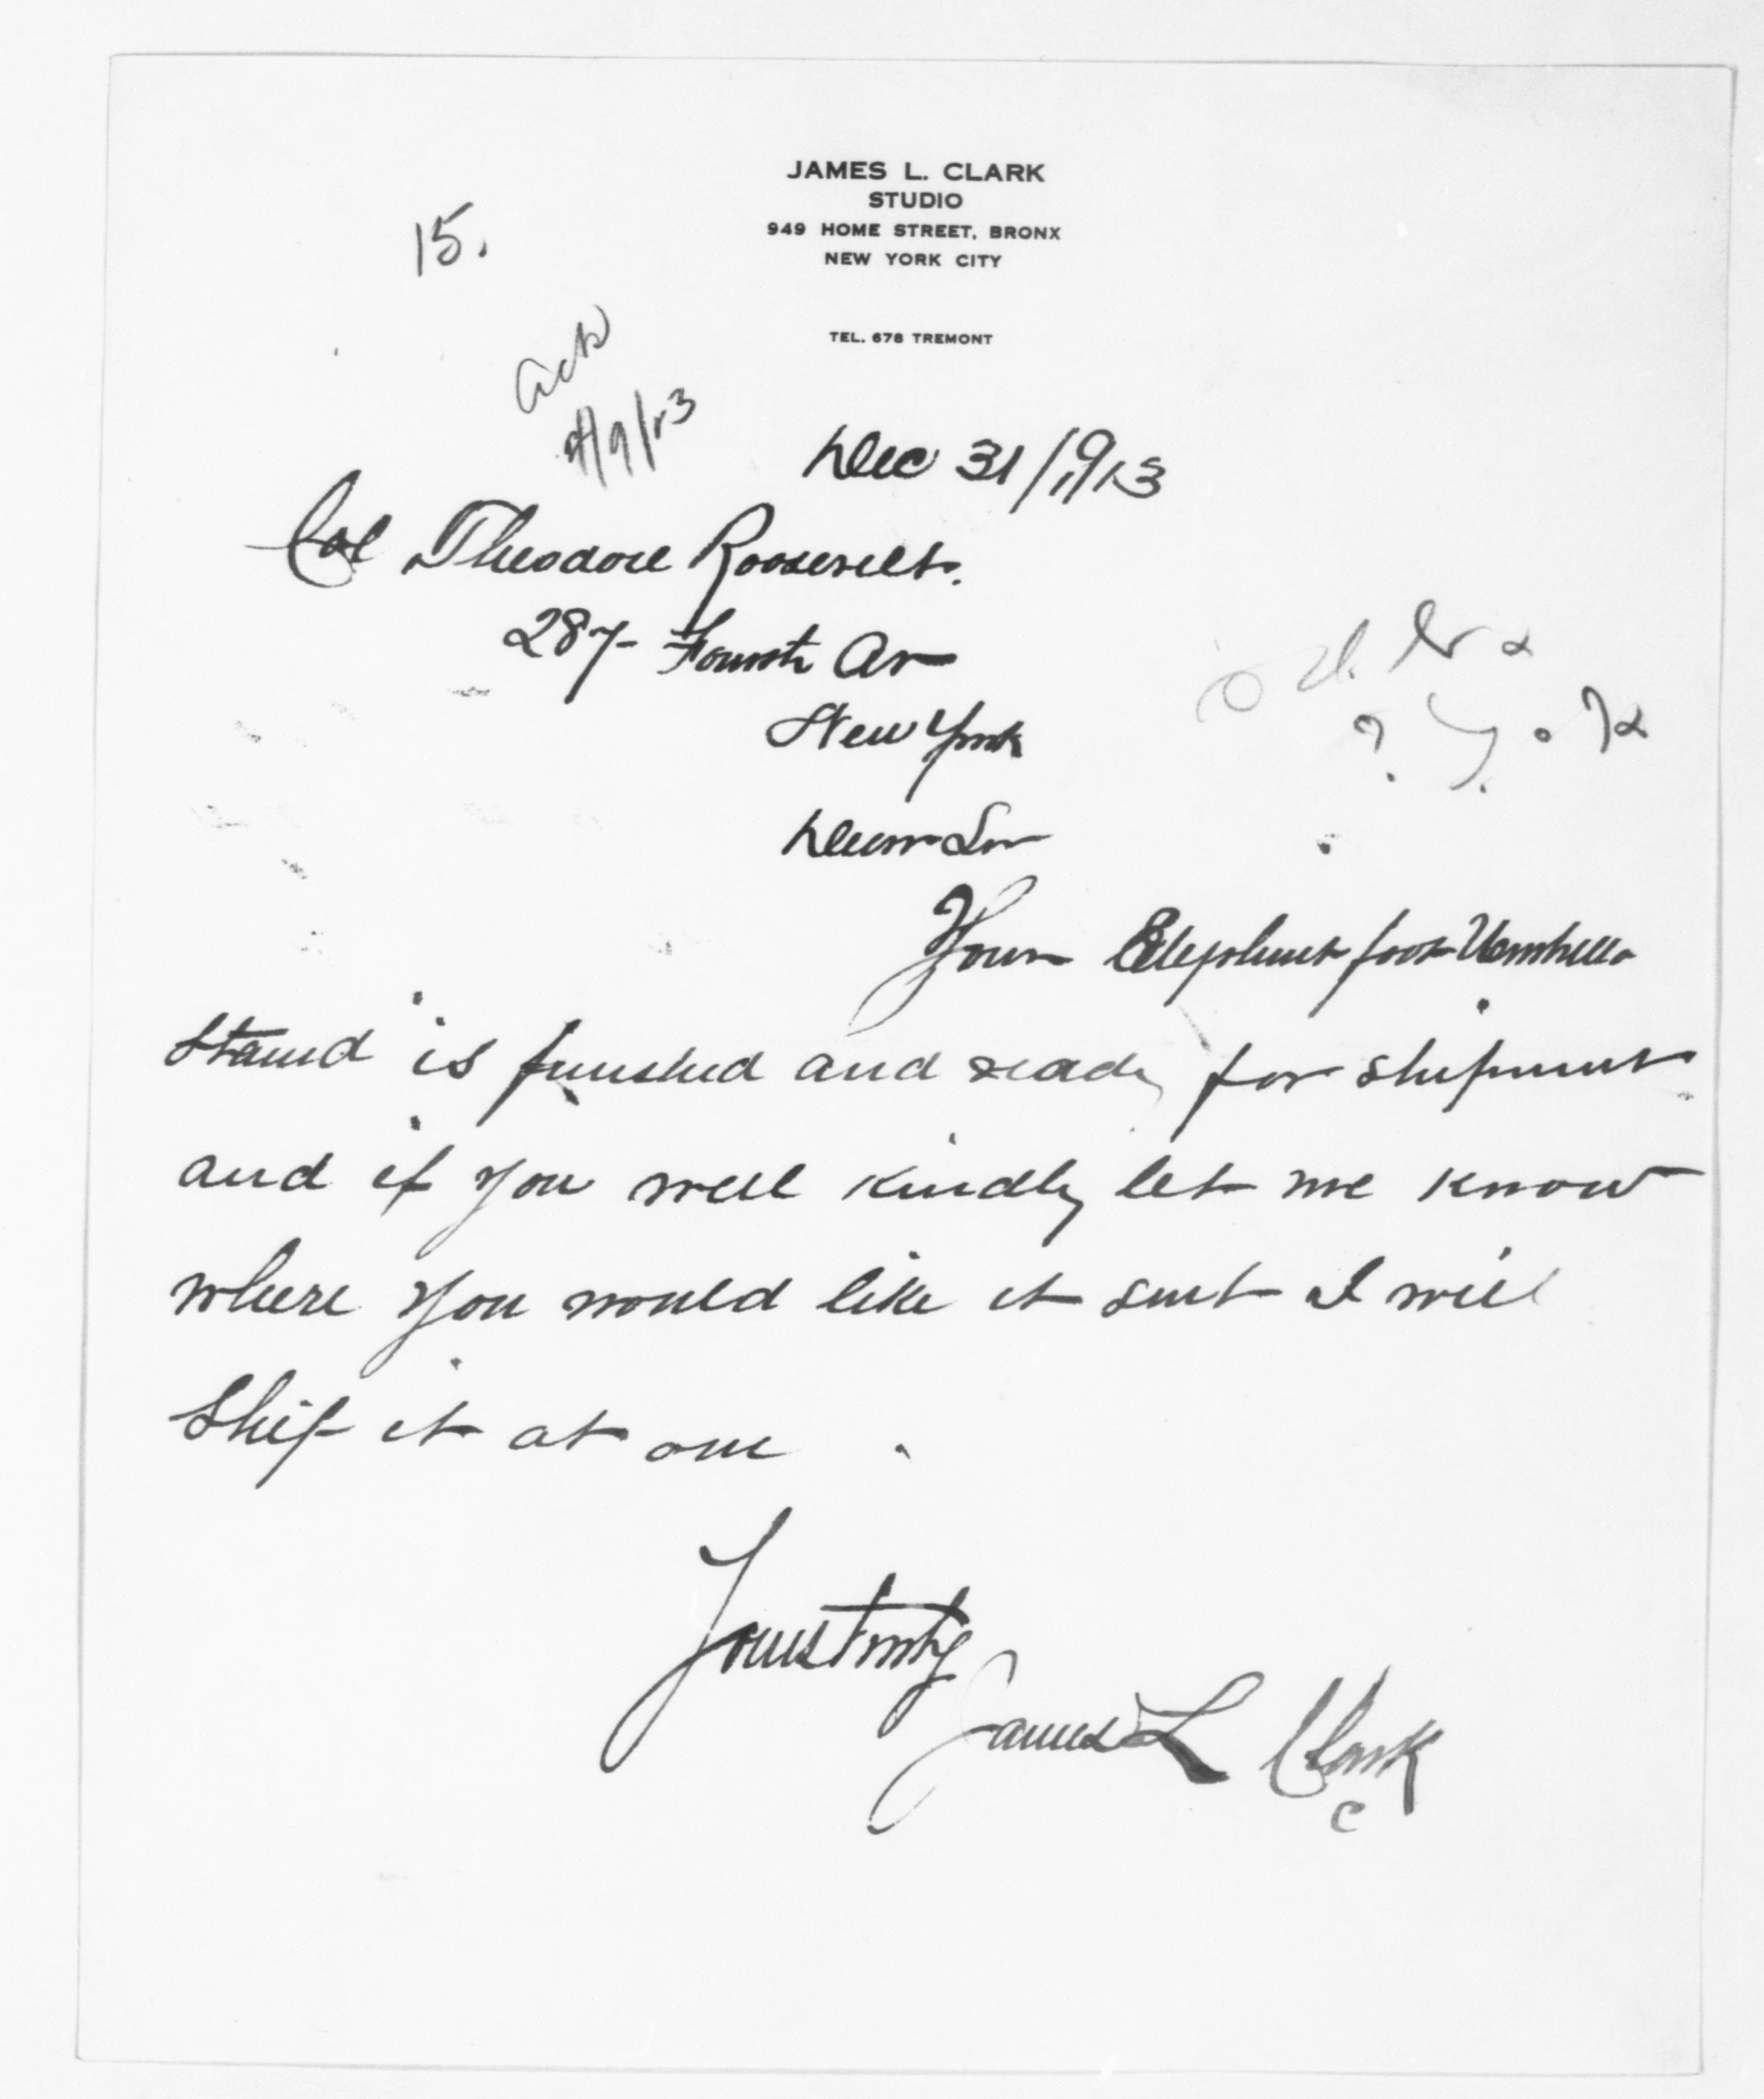 JAMES L. CLARK
STUDIO
949 HOME STREET, BRONX
NEW YORK CITY
TEL. 678 TREMONT
15.
ack
Dec 31/1913
Col Theodore Roosevelt.
287 Fourth Av
New York
Dear Sir
Your Elephant foot Umbrella
Stand is finished and ready for shipment
and if you will kindly let me know
where you would like it sent I will
Ship it at once
Yours truly
James L Clark
c